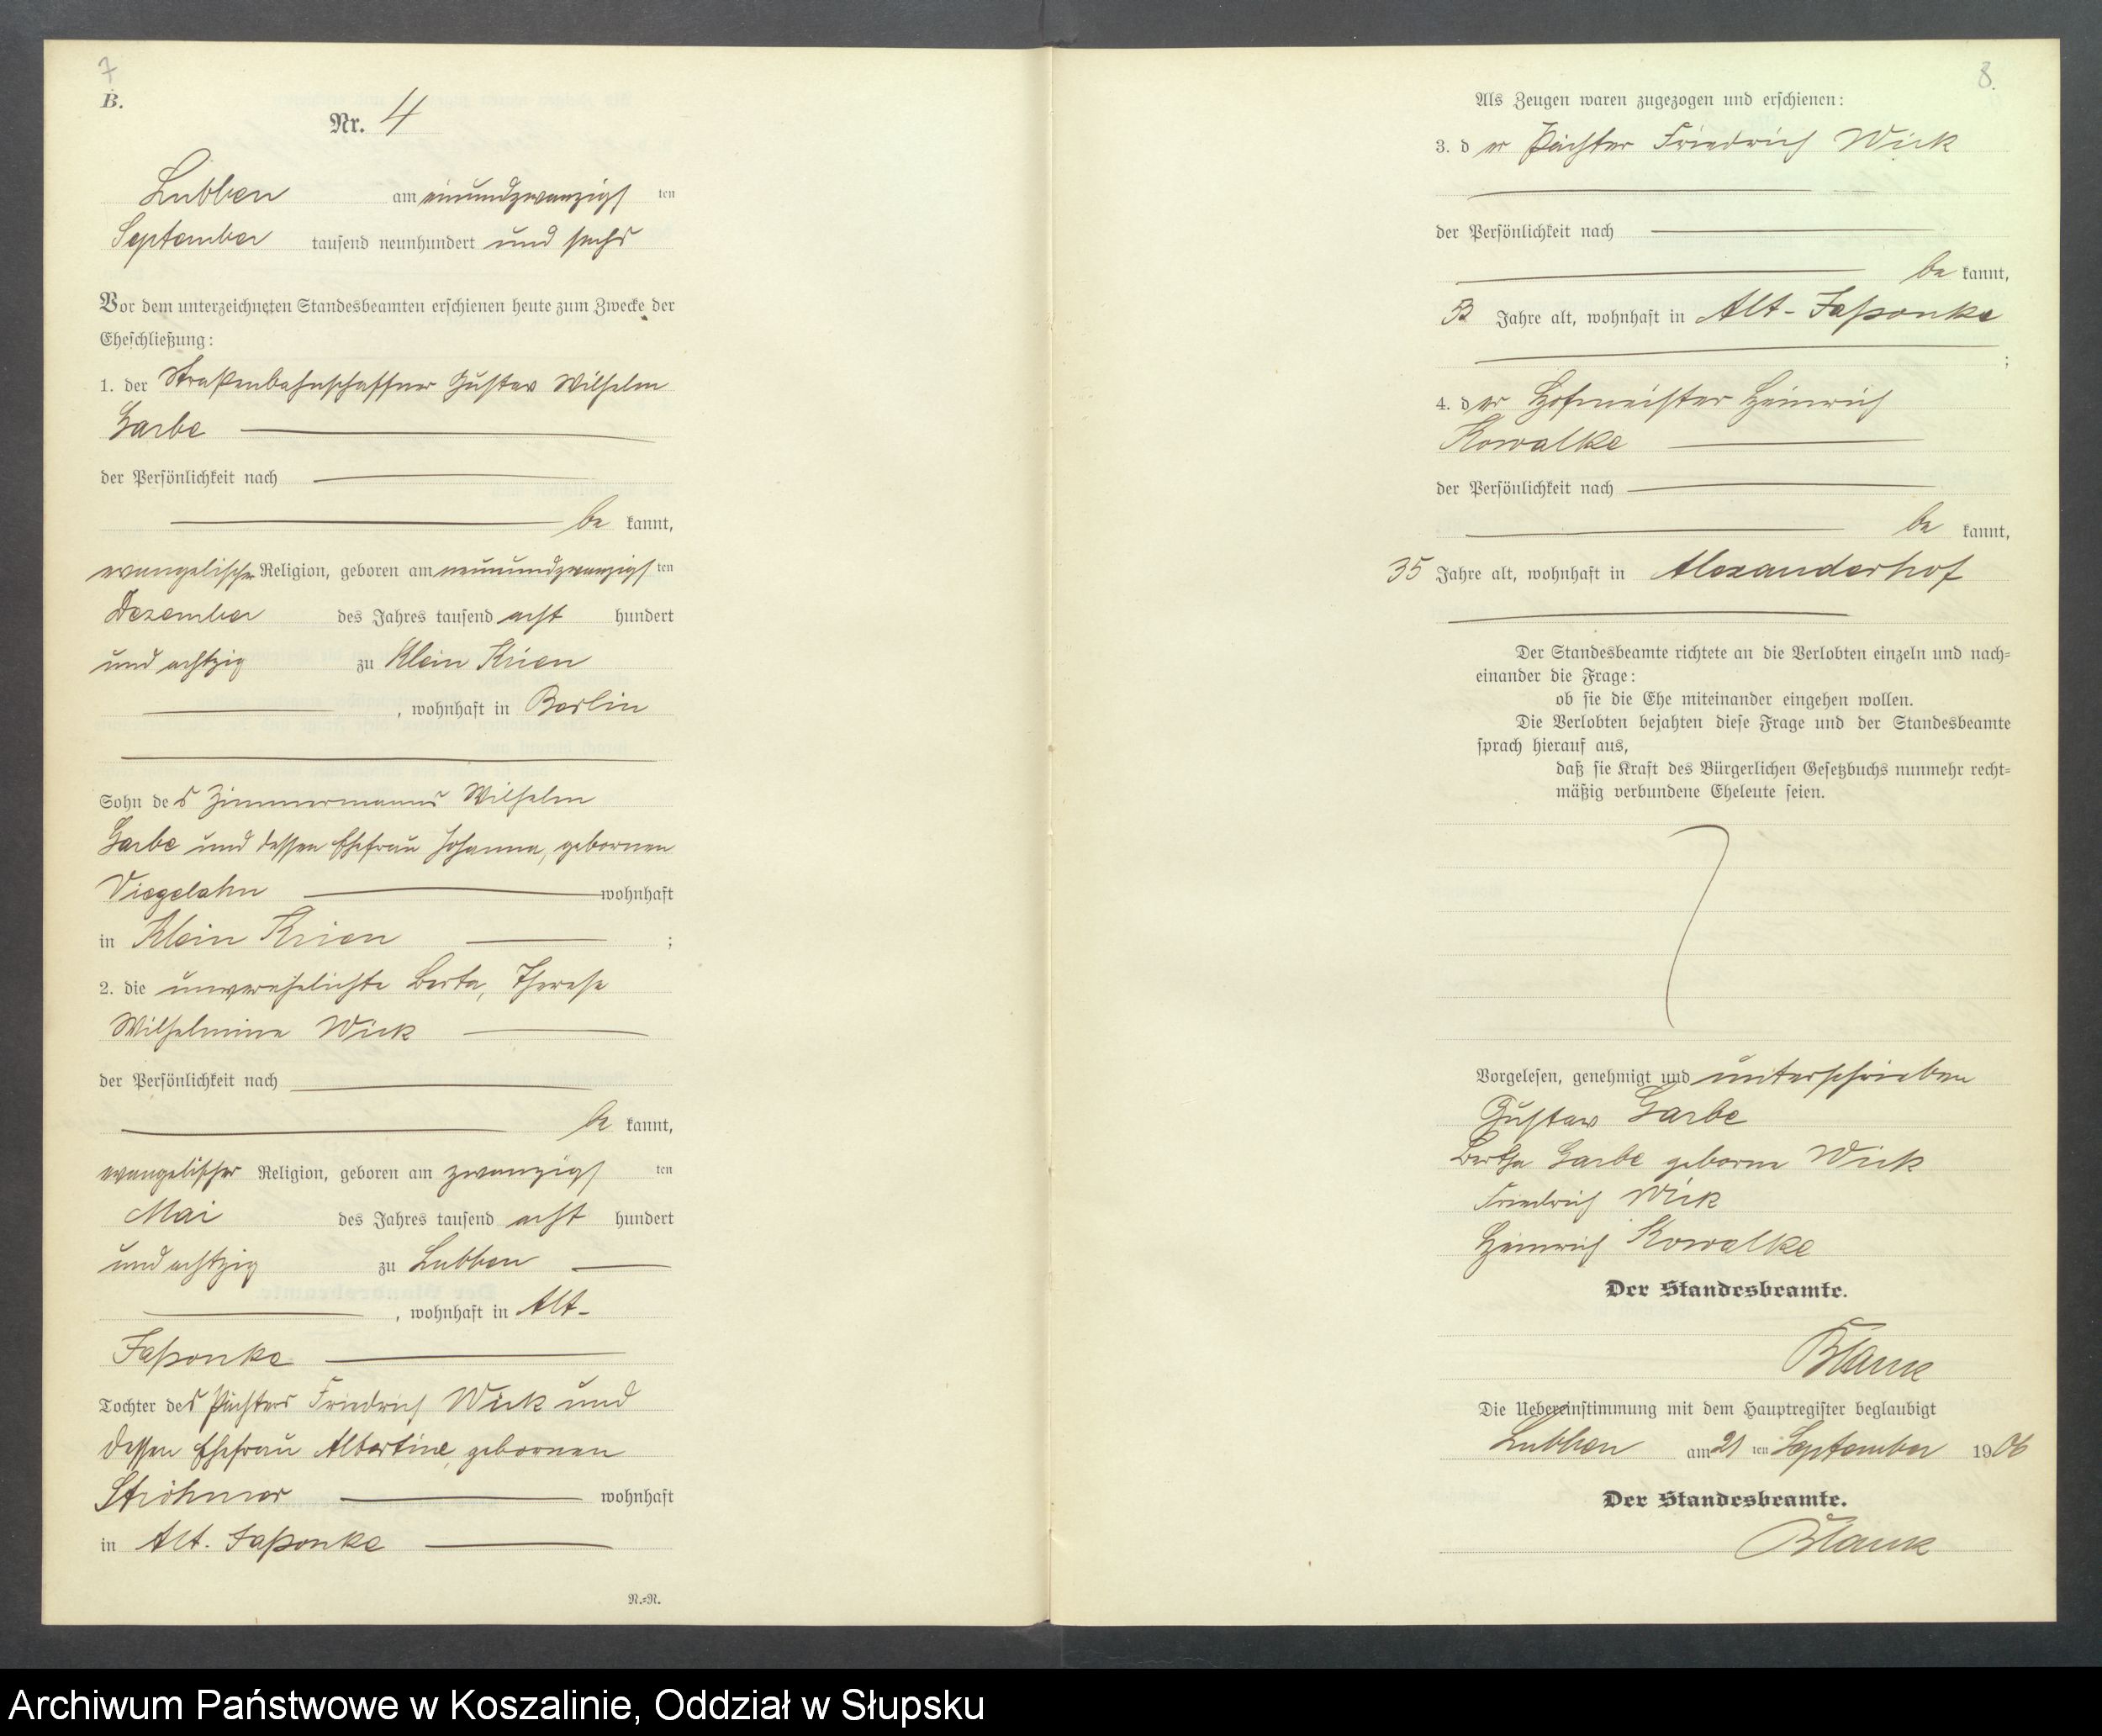 7
B.
Nr. 4
Lubben am einundzwanzigs ten
September tausend neunhundert und sechs
Vor dem unterzeichneten Standesbeamten erschienen heute zum Zwecke der
Eheschließung:
1. der Straßenbahnschaffner Gustav Wilhelm
Garbe
der Persönlichkeit nach
be kannt,
evangelischer Religion, geboren am neunundzwanzigs ten
Dezember des Jahres tausend acht hundert
und achtzig zu Klein Krien
, wohnhaft in Berlin
Sohn des Zimmermanns Wilhelm
Garbe und dessen Ehefrau Johanna, gebornen
Viegelahn wohnhaft
in Klein Krien ;
2. die unverehelichte Berta, Therese
Wilhelmine Wick
der Persönlichkeit nach
be kannt,
evangelischer Religion, geboren am zwanzigs ten
Mai des Jahres tausend acht hundert
und achtzig zu Lubben
, wohnhaft in Alt-
Jasonke
Tochter des Pächters Friedrich Wick und
dessen Ehefrau Albertine, gebornen
Ströhmer wohnhaft
in Alt. Jasonke
N.=N.
8.
Als Zeugen waren zugezogen und erschienen:
3. der Pächter Friedrich Wick
der Persönlichkeit nach
be kannt,
Jahre alt, wohnhaft in Alt-Jasonke
;
4. der Hofmeister Heinrich
Kowalke
der Persönlichkeit nach
be kannt,
35 Jahre alt, wohnhaft in Alexanderhof
Der Standesbeamte richtete an die Verlobten einzeln und nach=
einander die Frage:
ob sie die Ehe miteinander eingehen wollen.
Die Verlobten bejahten diese Frage und der Standesbeamte
sprach hierauf aus,
daß sie Kraft des Bürgerlichen Gesetzbuchs nunmehr recht=
mäßig verbundene Eheleute seien.
Vorgelesen, genehmigt und unterschrieben
Gustav Garbe
Bertha Garbe geborne Wick
Friedrich Wick
Heinrich Kowalke
Der Standesbeamte.
Blank
Die Uebereinstimmung mit dem Hauptregister beglaubigt
Lubben am 21 ten September 1906
Der Standesbeamte.
Blank
Archiwum Państwowe w Koszalinie, Oddział w Słupsku